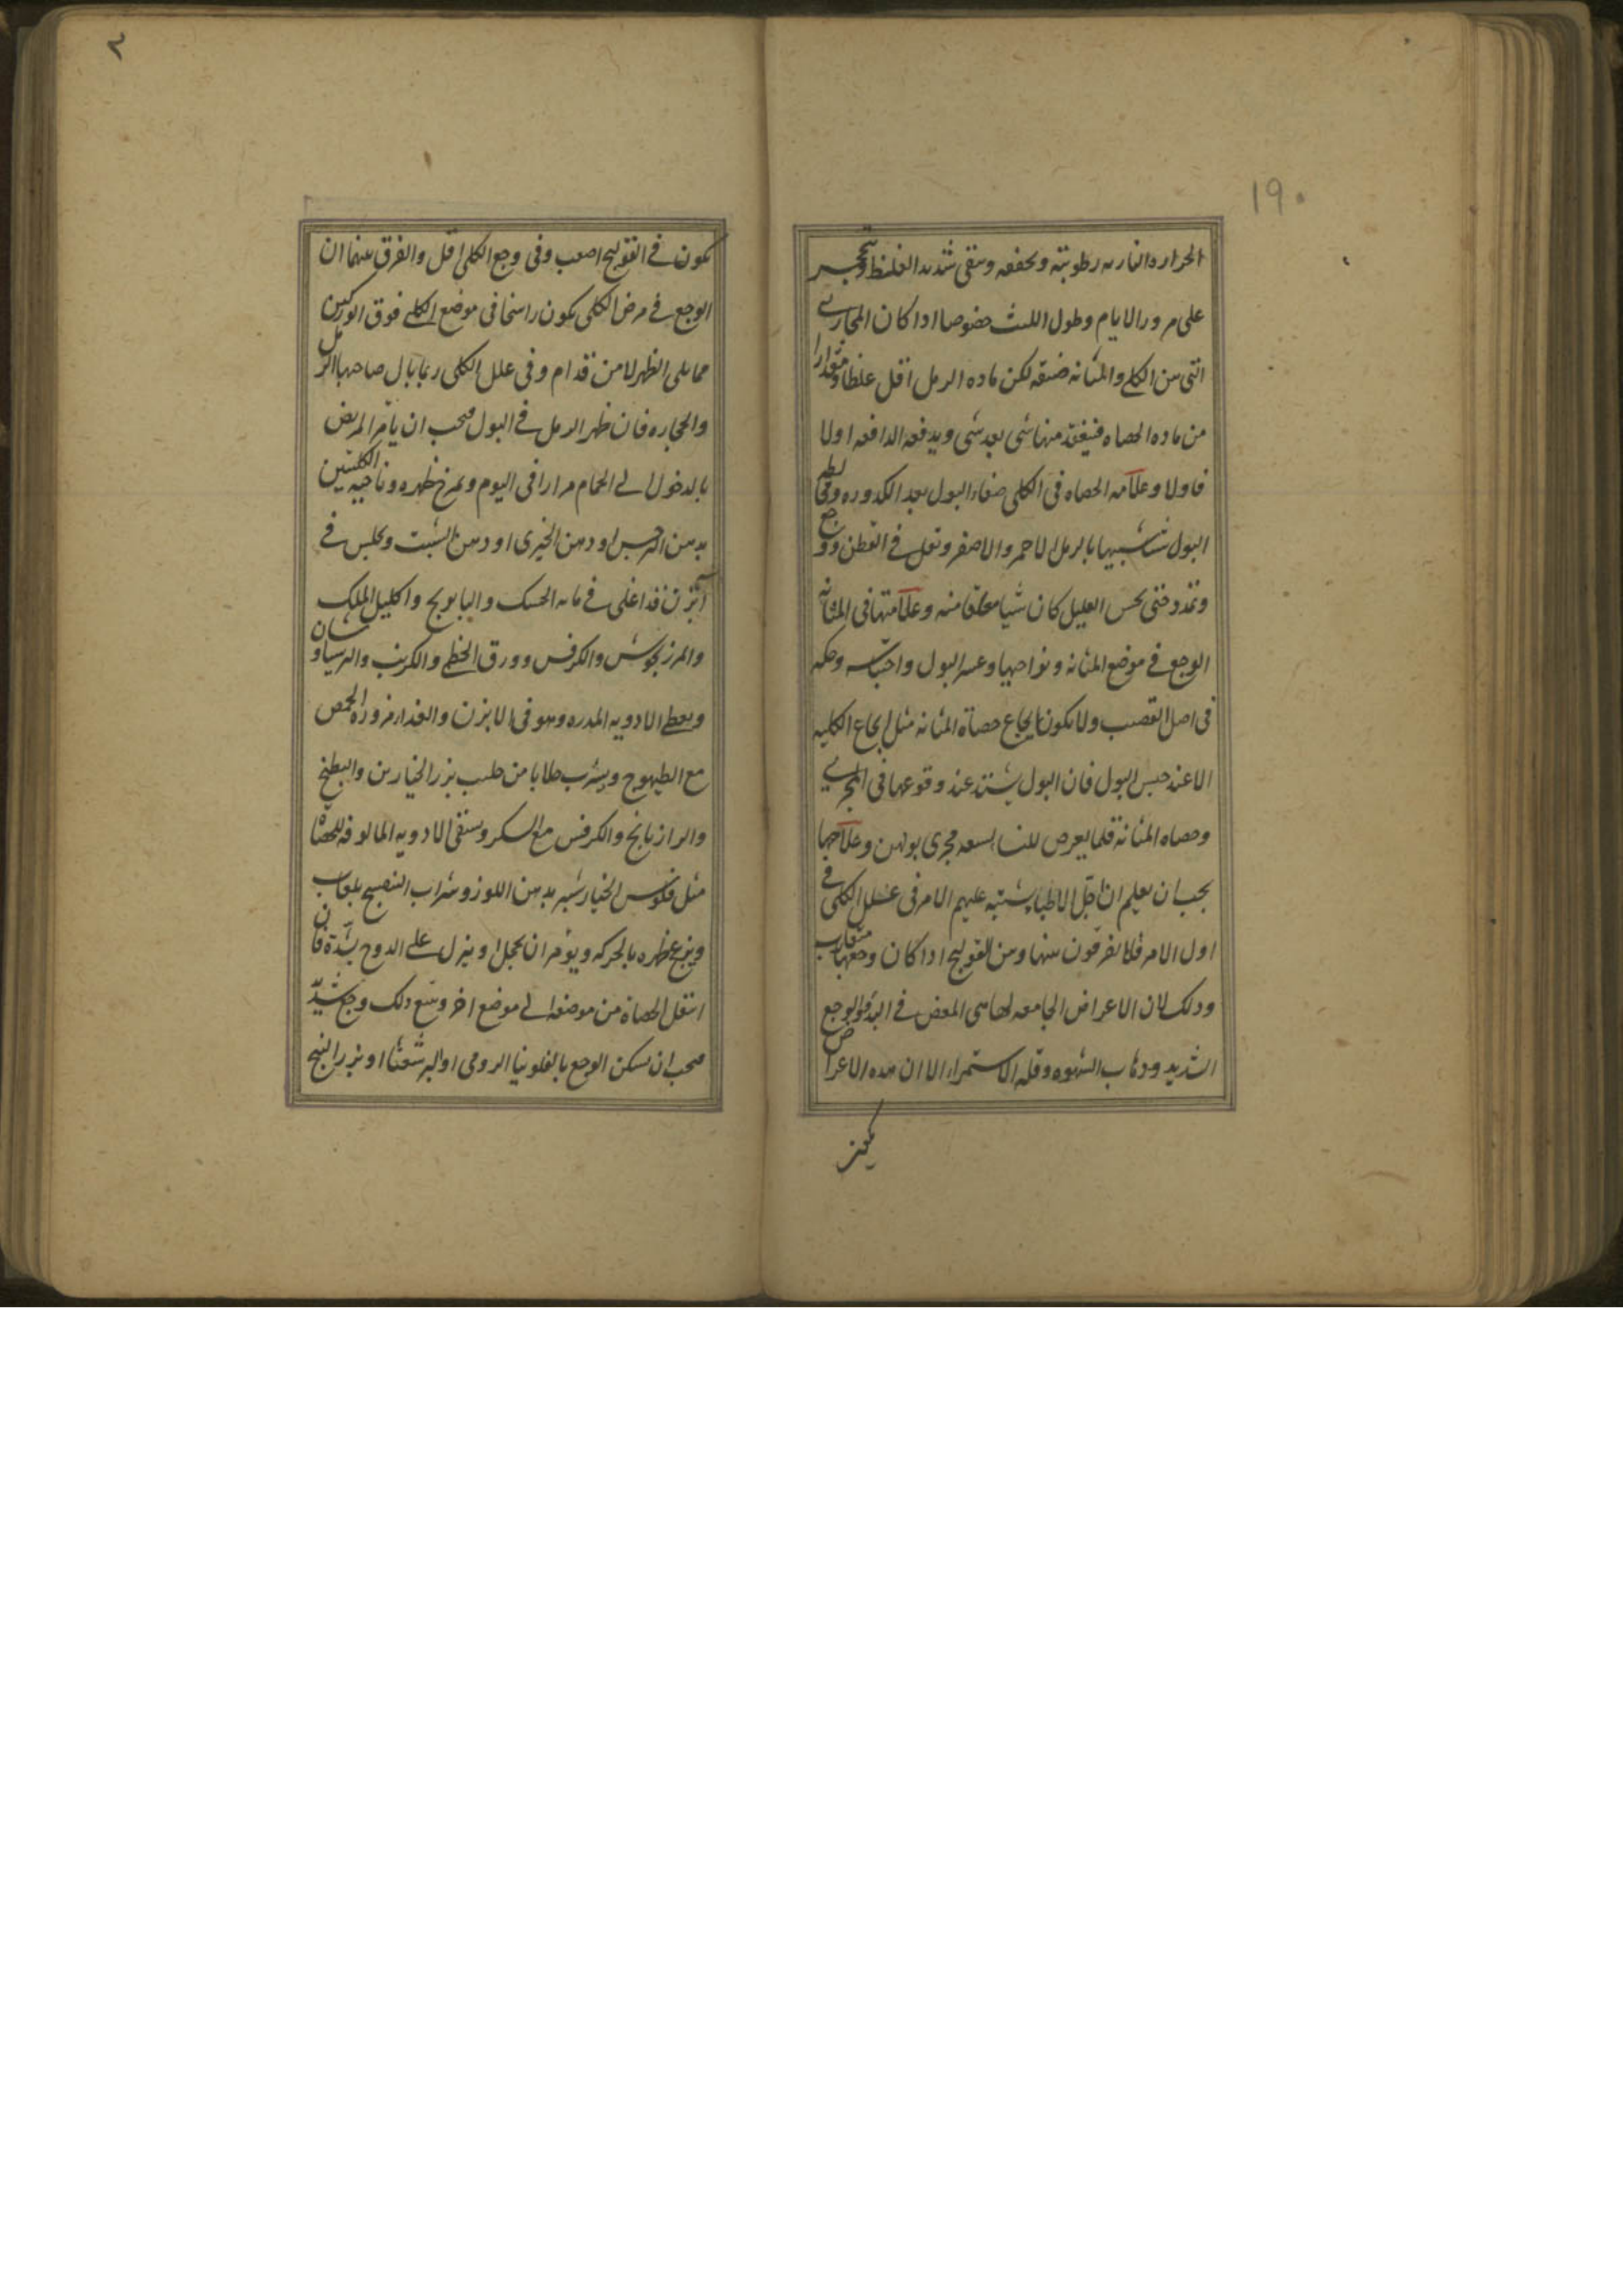 ١٩٠
الحراره الناريه رطوبته وتجففه وتبقى شديد الغلظ وتتحجر
على مرور الايام وطول اللبث خصوصا اذا كان المجارى
التى بين الكلى والمثانه ضيقه لكن ماده الرمل اقل غلظا ومقدارا
من ماده الحصاه فينعقد منها شى بعد شى ويدفعه الدافعه اولا
فاولا وعلامه الحصاه فى الكلى صفاء البول بعد الكدوره وفى
البول شبيها بالرمل الاحمر والاصفر وثقل فى القطن ووجع
وتمدد حتى يحس العليل كان شيا معلقا منه وعلامتها فى المثانه
الوجع فى موضع المثانه ونواحيها وعسر البول واحتباسه وحكه
فى اصل القضيب ولا يكون ايجاع حصاة المثانه مثل ايجاع الكليه
الا عند حبس البول فان البول يشتد عند وقوعها فى المجرى
وحصاه المثانة قلما يعرض للنسا لسعه مجرى بولهن وعلاجها
يجب ان يعلم ان اجل الاطبا يشتبه عليهم الامر فى علل الكلى فى
اول الامر فلا يفرقون بينها وبين القولنج اذا كان وجعها متقارب
وذلك لان الاعراض الجامعه لهما هى المغص فى البدو والوجع
الشديد وذهاب الشهوه وقله الاستمراء الا ان هذه الاعراض
يكون فى القولنج اصعب وفى وجع الكلى اقل والفرق بينهما ان
الوجع فى مرض الكلى يكون راسخا فى موضع الكلى فوق الوركين
مما يلى الظهر لا من قدام وفى علل الكلى ربما بال صاحبها الرمل
والحجاره فان ظهر الرمل فى البول فيجب ان يامر المريض
بالدخول الى الحمام مرارا فى اليوم ويمرخ ظهره وناحيه الكليتين
بدهن النرجس او دهن الخيرى او دهن الشبت ويجلس فى
آبزن قد اغلى فى مائه الحسك والبابونج واكليل الملك
والمرزنجوش والكرفس وورق الخطمى والكرنب والبرسياوشان
ويعطى الادويه المدره وهو فى الابزن والغذا مزوره الحمص
مع الطيهوج ويشرب جلابا من حليب بزر الخيارين والبطيخ
والرازيانج والكرفس مع السكر ويسقى الادويه المالوفه للحصاة
مثل فلوس الخيارشنبر بدهن اللوز وشراب البنفسج بلعاب
ويزعج ظهره بالحركه ويؤمر ان يحجل او ينزل على الدرج بشدة فان
انتقل الحصاة من موضعه الى موضع اخر وتبع ذلك وجع شديد
فيجب ان يسكن الوجع بالفلونيا الرومى او البرشعثا او بزر البنج